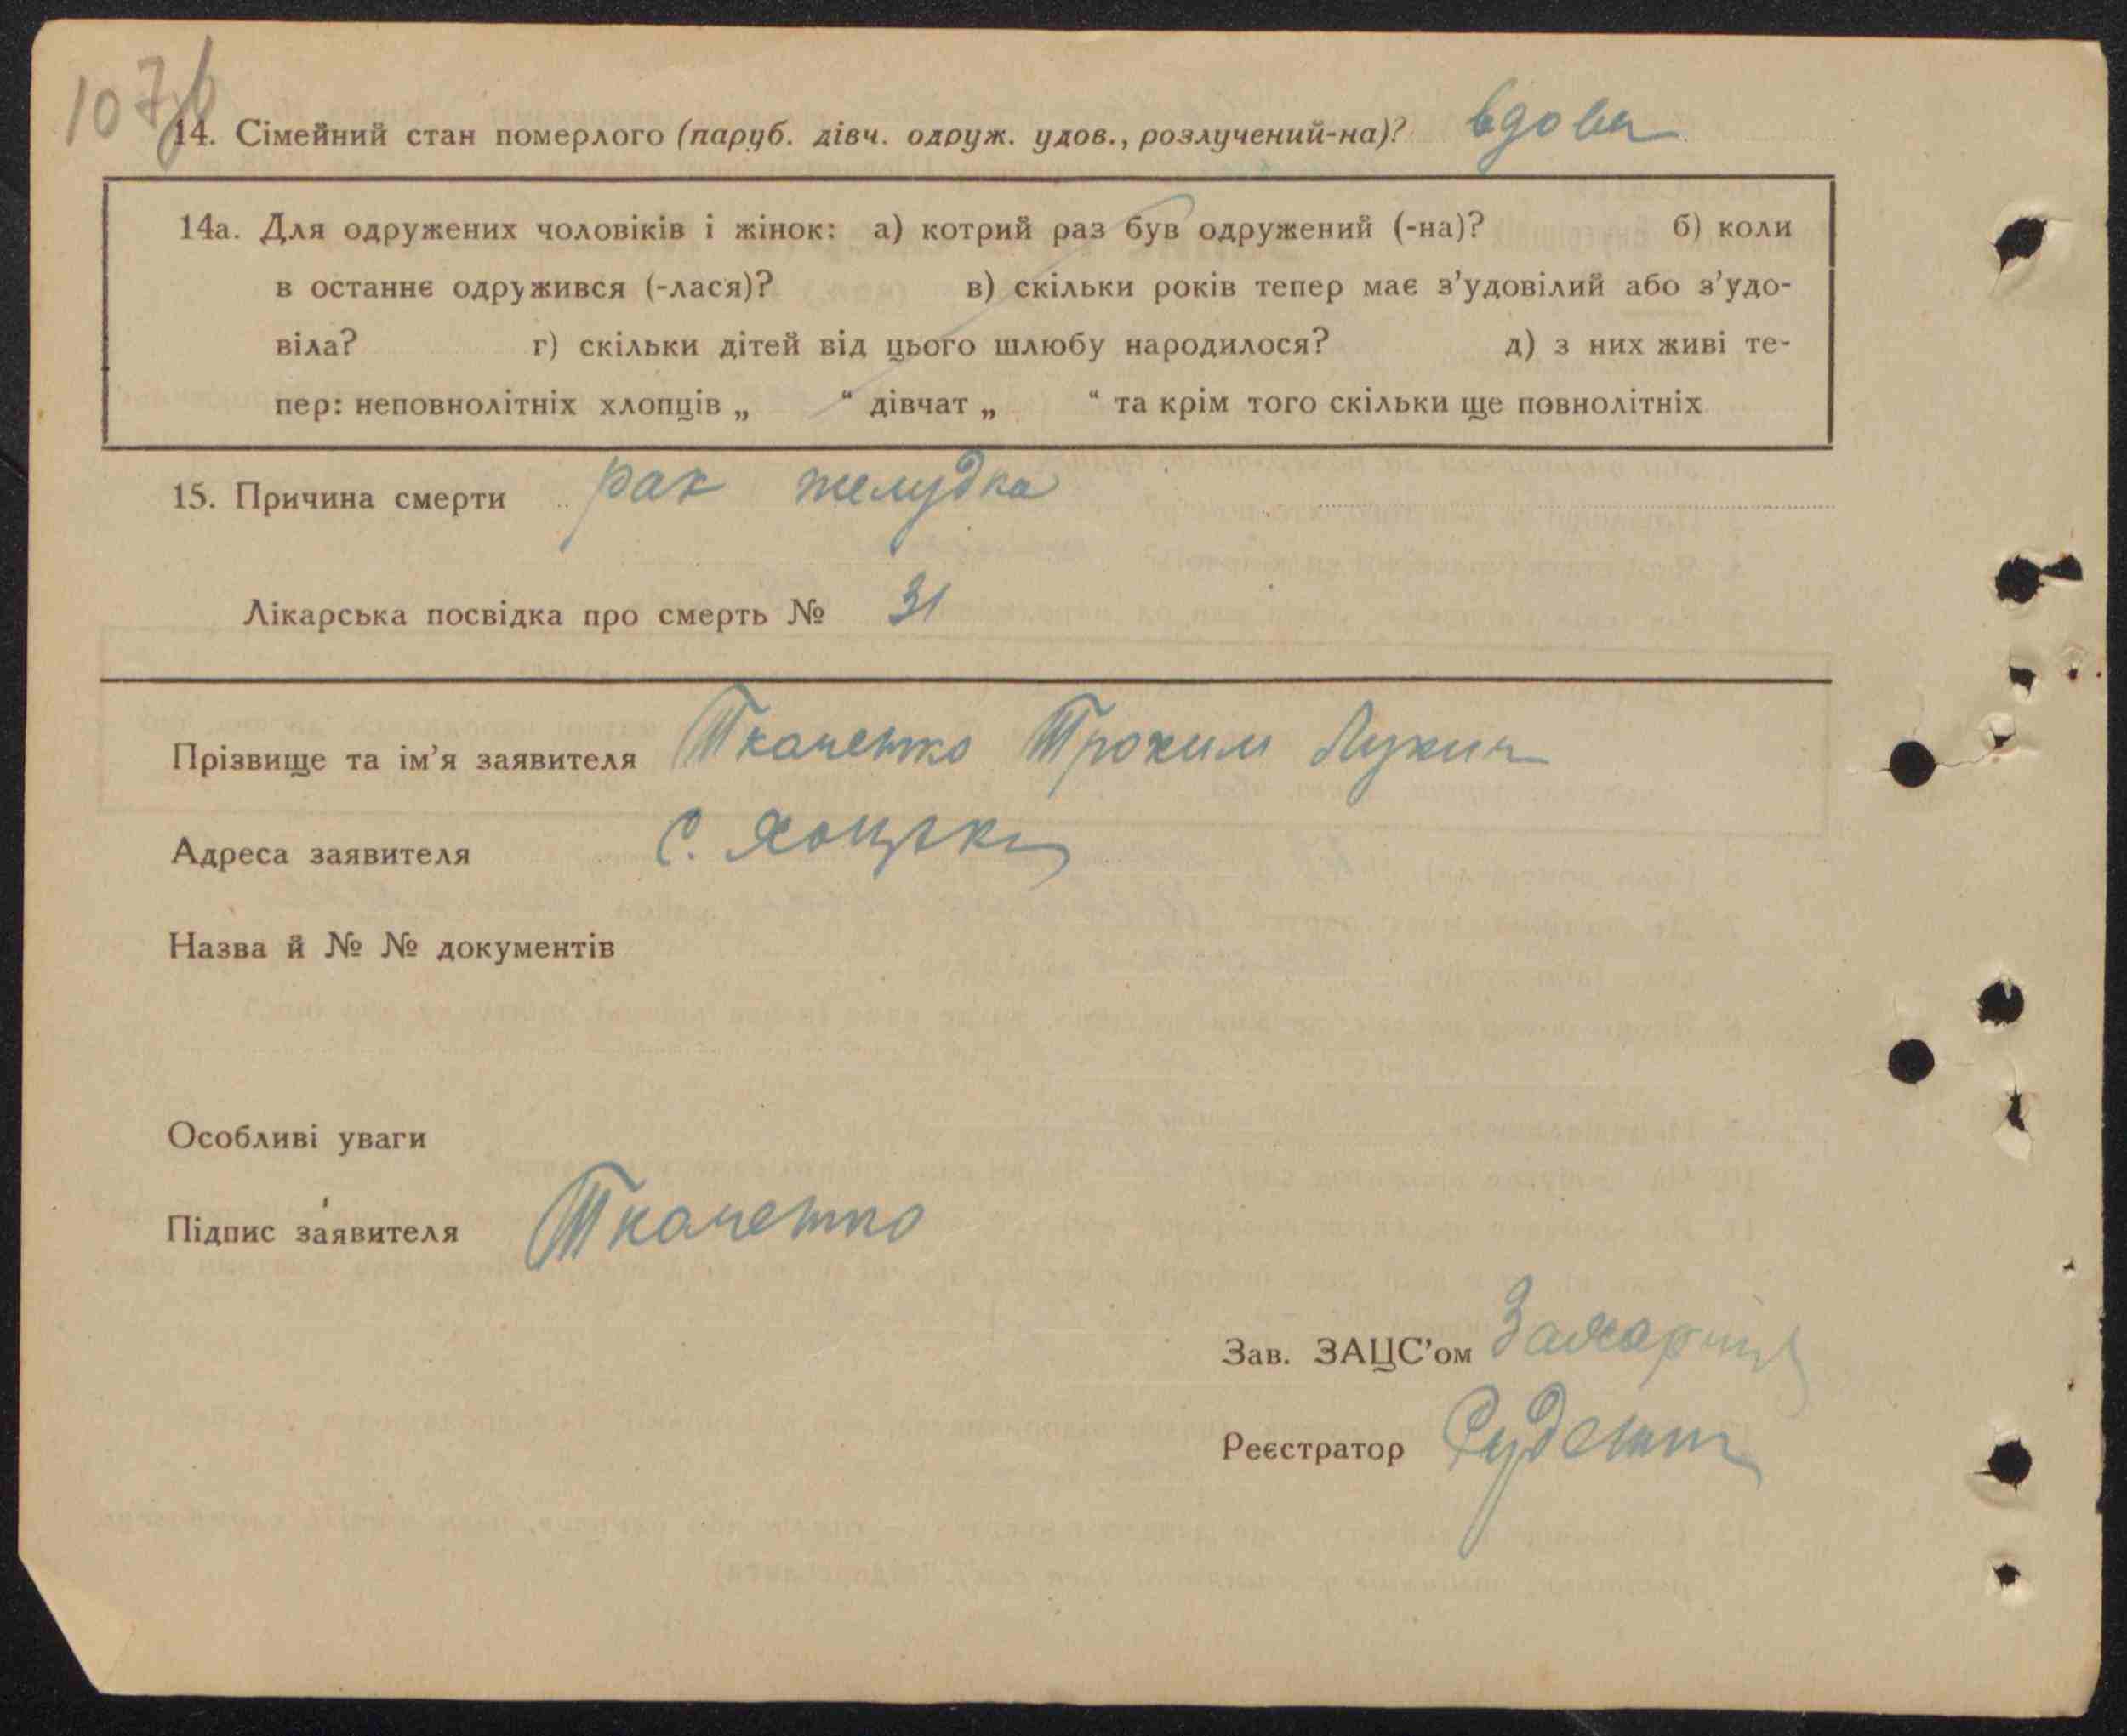 107
14. Сімейний стан померлого (паруб. дівч. одруж. удов., розлучений-на)? вдова
14а. Для одружених чоловіків і жінок: а) котрий раз був одружений (-на)? б) коли
в останнє одружився (-лася)? в) скільки років тепер має з’удовілий або з’удо-
віла? г) скільки дітей від цього шлюбу народилося? д) з них живі те-
пер: неповнолітніх хлопців „ “ дівчат „ “ та крім того скільки ще повнолітніх
15. Причина смерти рак желудка
Лікарська посвідка про смерть № 31
Прізвище та ім’я заявителя Ткаченко Трохим Лукич
Адреса заявителя с. Хоцьки
Назва й № № документів
Особливі уваги
Підпис заявителя Ткаченко
Зав. ЗАЦС’ом
Реєстратор